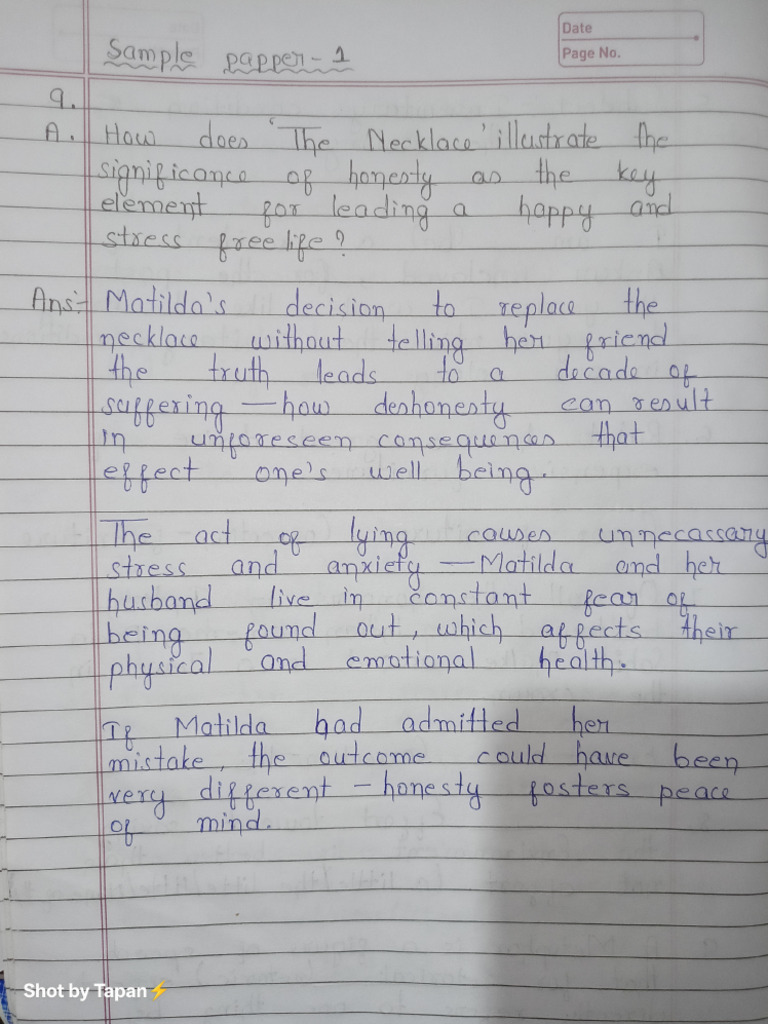 Date
Page No.
Sample papper - 1
9.
A. How does 'The Necklace' illustrate the
significance of honesty as the key
element for leading a happy and
stress free life?
Ans:- Matilda's decision to replace the
necklace without telling her friend
the truth leads to a decade of
suffering — how deshonesty can result
in unforeseen consequences that
effect one's well being.
The act of lying causes unnecassary
stress and anxiety — Matilda and her
husband live in constant fear of
being found out, which affects their
physical and emotional health.
If Matilda had admitted her
mistake, the outcome could have been
very different - honesty fosters peace
of mind.
Shot by Tapan⚡